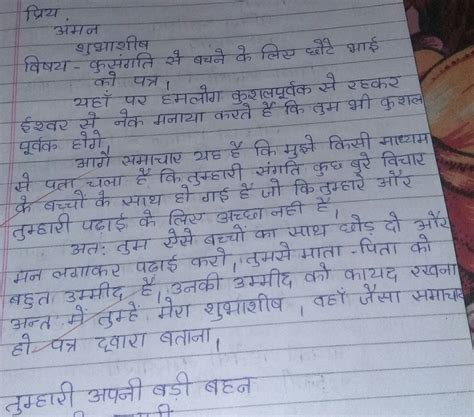 प्रिय
अंमन
शुभाशीष
विषय - कुसंगति से बचने के लिए छोटे भाई
को पत्र।
यहाँ पर हमलोग कुशलपूर्वक से रहकर
ईश्वर से नेक मनाया करते हैं कि तुम भी कुशल
पूर्वक होंगे।
आगे समाचार यह है कि मुझे किसी माध्यम
से पता चला है कि तुम्हारी संगति कुछ बुरे विचार
के बच्चों के साथ हो गई है जो कि तुम्हारे और
तुम्हारी पढ़ाई के लिए अच्छा नही है।
अतः तुम ऐसे बच्चों का साथ छोड़ दो और
मन लगाकर पढ़ाई करो। तुमसे माता-पिता को
बहुत उम्मीद है। उनकी उम्मीद को कायद रखना
अन्त में तुम्हें मेरा शुभाशीष। वहाँ जैसा समाचार
हो पत्र द्वारा बताना।
तुम्हारी अपनी बड़ी बहन